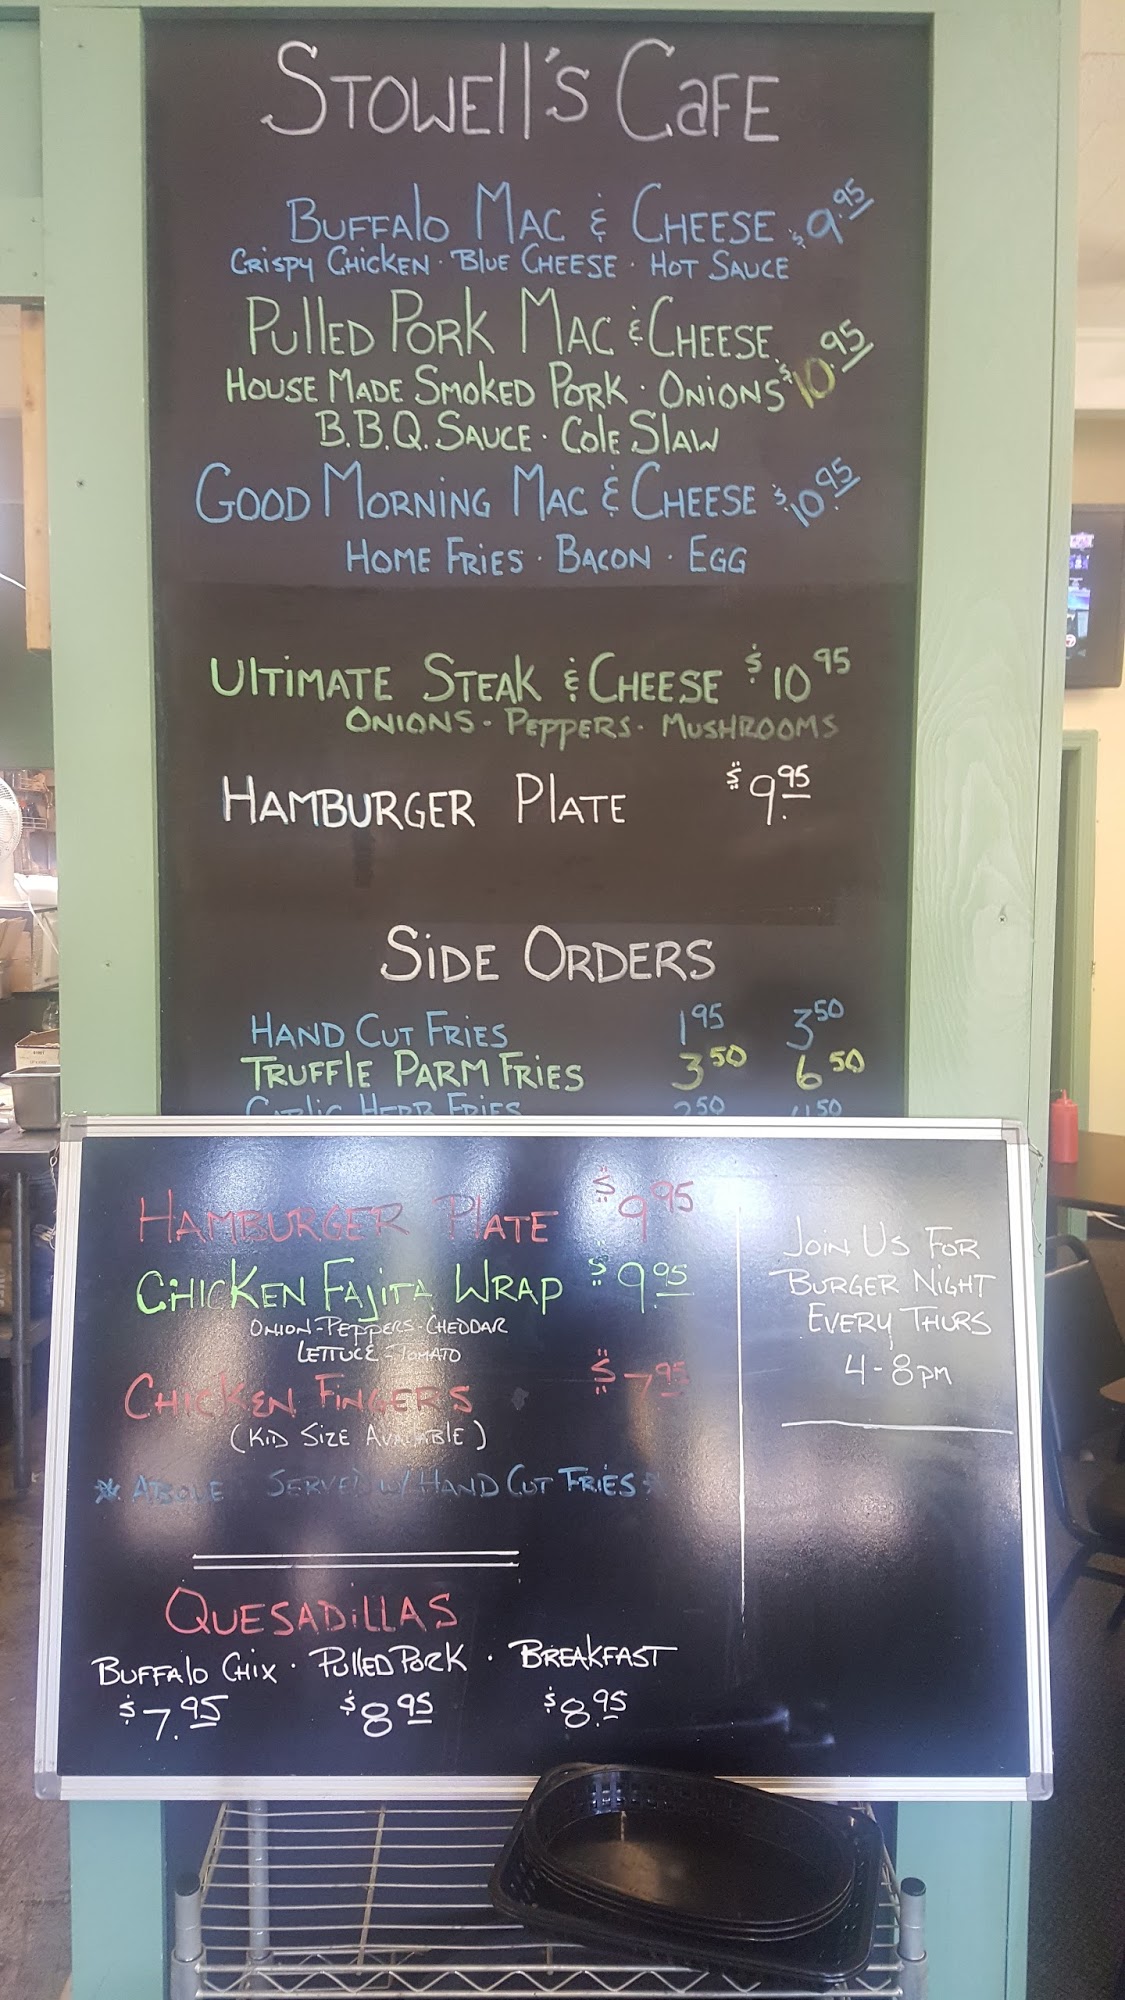 Stowell's Cafe
Buffalo Mac & Cheese $9.95
Crispy Chicken · Blue Cheese · Hot Sauce
Pulled Pork Mac & Cheese $10.95
House Made Smoked Pork · Onions
B.B.Q. Sauce · Cole Slaw
Good Morning Mac & Cheese $10.95
Home Fries · Bacon · Egg
Ultimate Steak & Cheese $10 95
Onions - Peppers - Mushrooms
Hamburger Plate $9.95
Side Orders
Hand Cut Fries 1 95 3 50
Truffle Parm Fries 3 50 6 50
Garlic Herb Fries 2 50 4 50
Hamburger Plate $9 95
Chicken Fajita Wrap $9.95
Onion - Peppers - Cheddar
Lettuce - Tomato
Chicken Fingers $7.95
(Kid Size Available)
* Above Served w/ Hand Cut Fries *
Quesadillas
Buffalo Chix · Pulled Pork · Breakfast
$7.95 $8 95 $8.95
Join Us For
Burger Night
Every Thurs
4-8pm